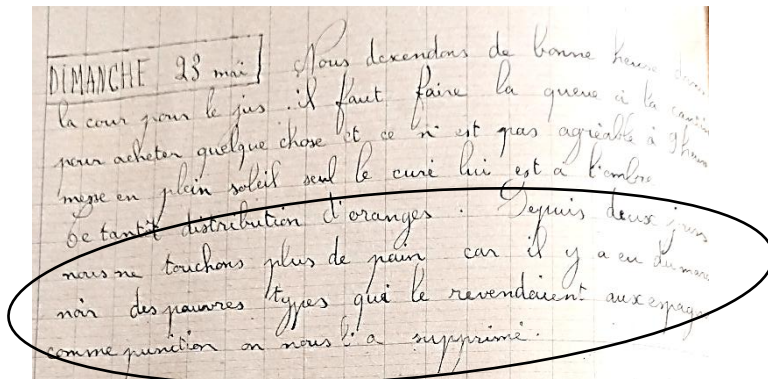 DIMANCHE 23 mai Nous descendons de bonne heure dans
la cour pour le jus. il faut faire la queue à la
pour acheter quelque chose et ce n'est pas agréable à 9h
messe en plein soleil seul le curé lui est a l'ombre
Ce tantôt distribution d'oranges. Depuis deux jours
nous ne touchons plus de pain car il y a eu du
noir des pauvres types qui le revendaient aux
comme punition on nous l'a supprimé.